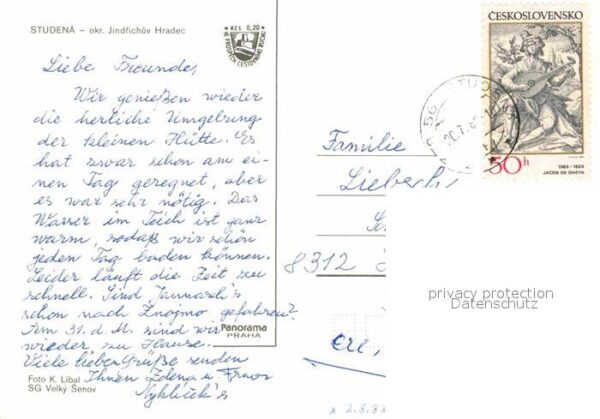 STUDENÁ – okr. Jindřichův Hradec
Kčs 0,20
VE PROSPĚCH CESTOVNÍHO RUCHU
Liebe Freunde,
Wir genießen wieder
die herliche Umgebung
der kleinen Hütte. Es
hat zwar schon am ei-
nen Tag geregnet, aber
es war sehr nötig. Das
Wasser im Teich ist ganz
warm, sodaß wir schön
jeden Tag baden können.
Leider läuft die Zeit zu
schnell. Sind
schon nach Znojmo gefahren?
Am 31. d. M. sind wir
wieder zu Hause.
Viele lieben Grüße senden
Ihnen Zdena u.
Panorama
PRAHA
Foto K. Líbal
SG Velký Šenov
ČESKOSLOVENSKO
50h
1565 - 1629
JACOB DE GHEYN
Familie
8312
privacy protection
Datenschutz